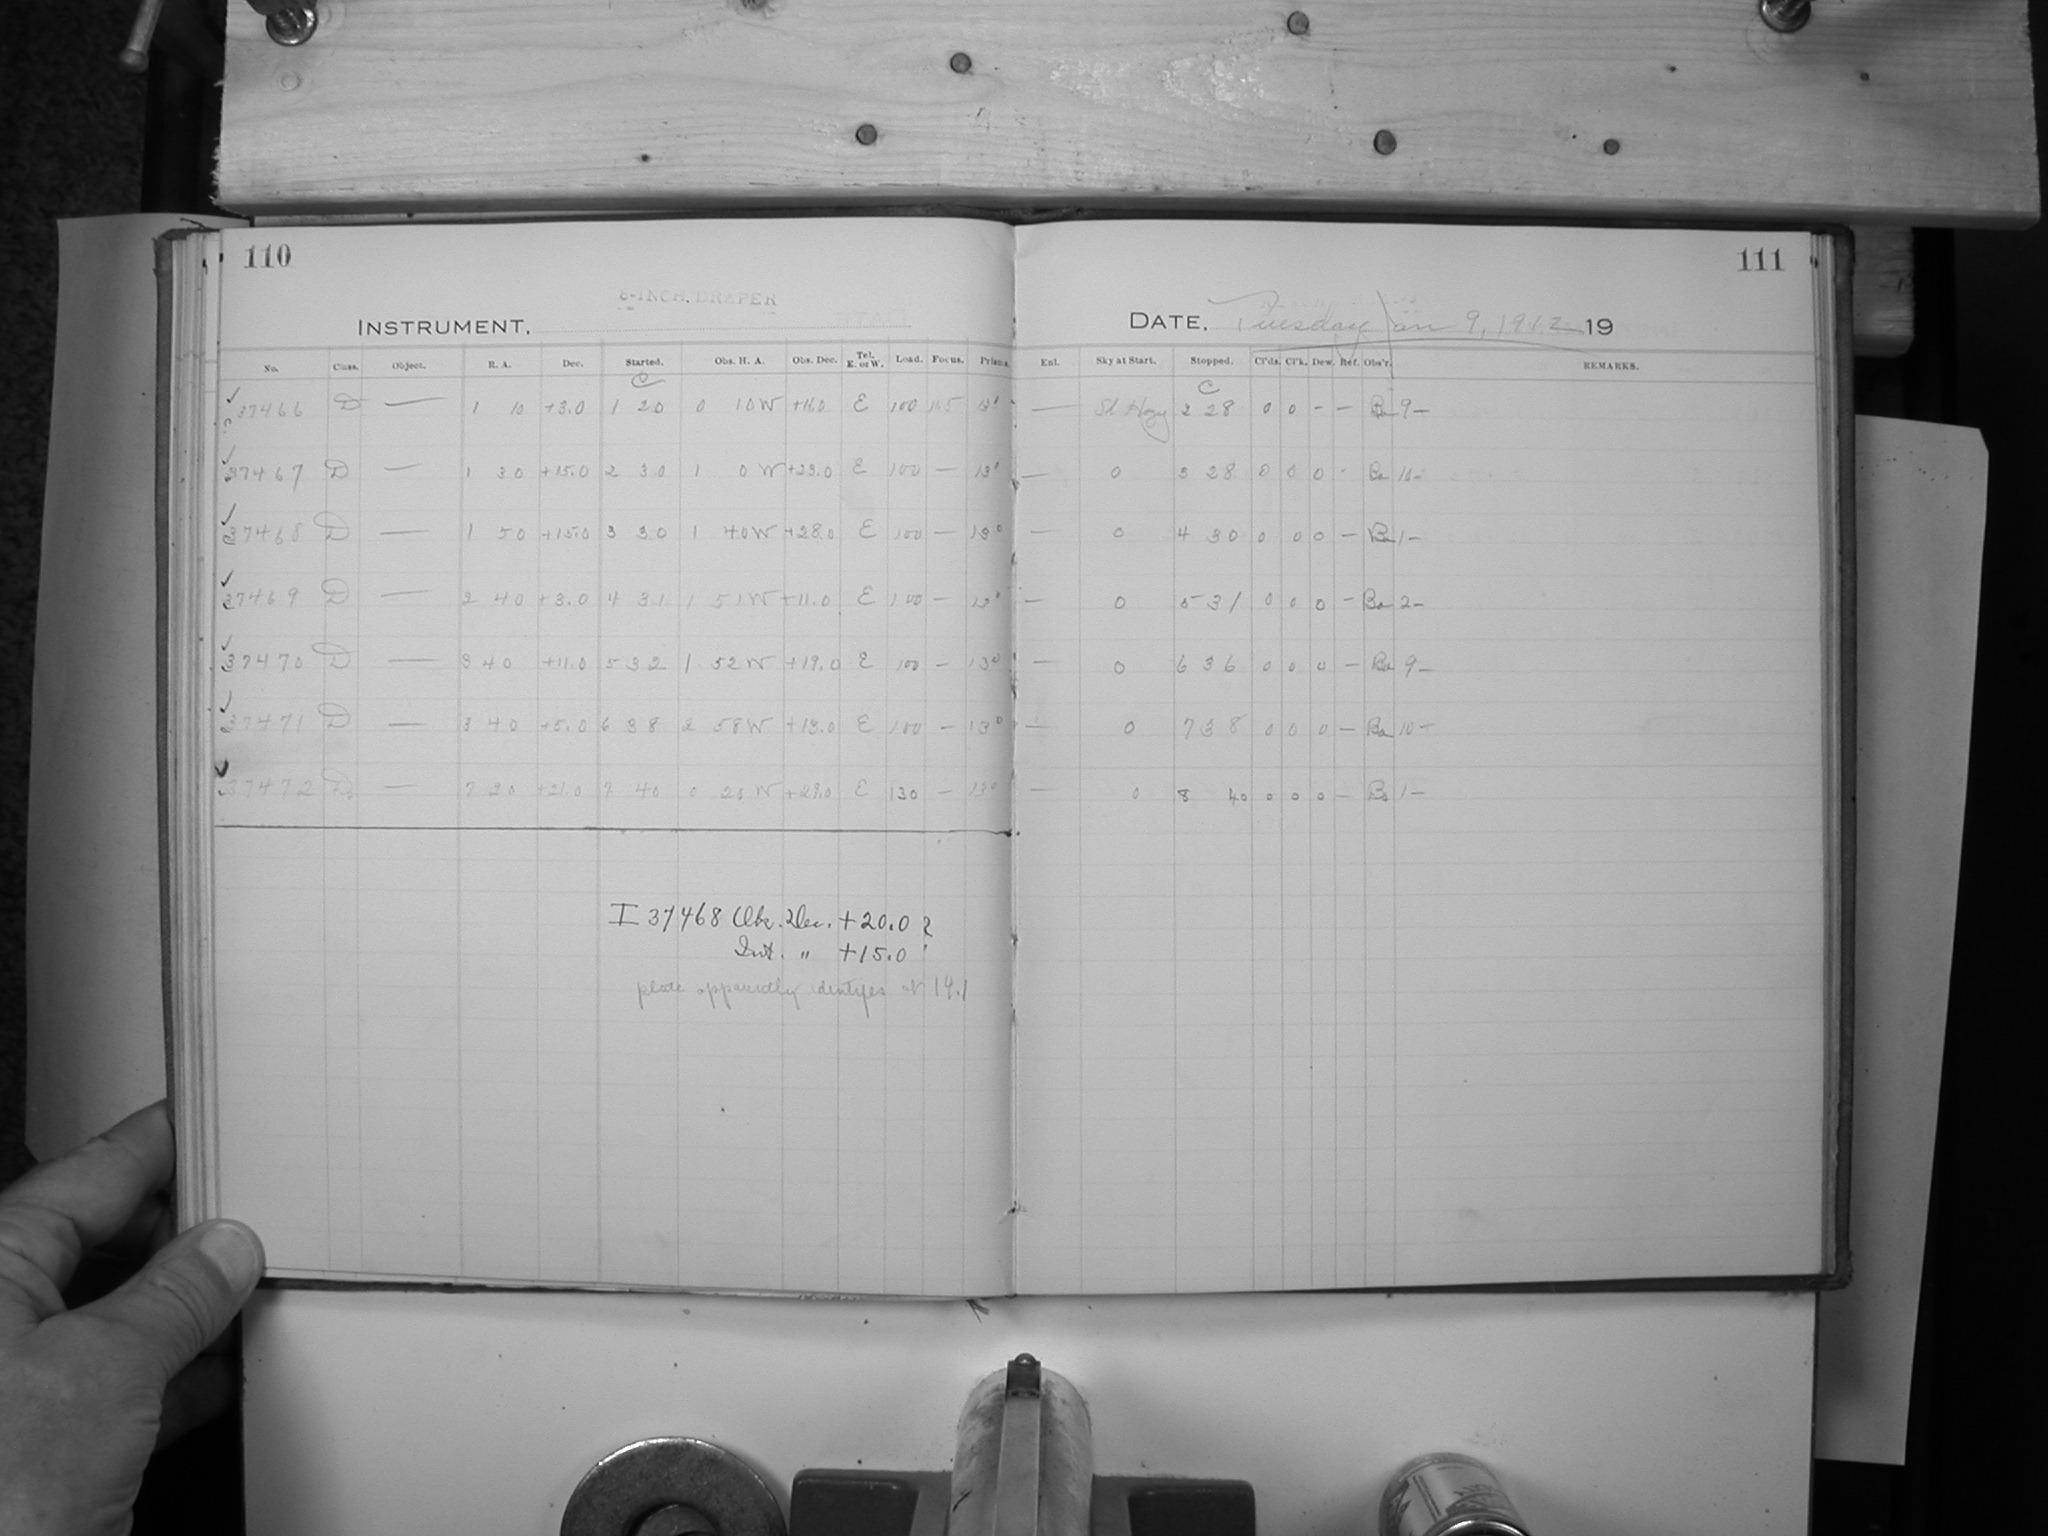 110
8-INCH DRAPER
INSTRUMENT.
No. Class. Object. R. A. Dec. Started. Obs. H. A. Obs. Dec. Tel. E. or W. Load. Focus. Prism.
37466 D — 1 10 +3.0 1 20 0 10 W +11.0 E 100 11.5 13°
37467 D — 1 30 +15.0 2 30 1 0 W +23.0 E 100 — 13°
37468 D — 1 50 +15.0 3 30 1 40 W +28.0 E 100 — 13°
37469 D — 2 40 +3.0 4 31 1 51 W +11.0 E 100 — 13°
37470 D — 3 40 +11.0 5 32 1 52 W +19.0 E 100 — 13°
37471 D — 3 40 +5.0 6 38 2 58 W +13.0 E 100 — 13°
37472 D — 7 20 +21.0 7 40 0 20 W +29.0 E 130 — 13°
I 37468 Obs. Dec. +20.0 ?
Int. " +15.0
plate apparently identifies at 19.1
111
DATE, Tuesday Jan 9, 1912 19
Enl. Sky at Start. Stopped. Cl'ds. Cl'k. Dew. Ref. Obs'r. REMARKS.
— Sl. Hazy 2 28 0 0 - — Ba 9 —
— 0 3 28 0 0 0 - Ba 10 —
— 0 4 30 0 0 0 — Ba 1 —
— 0 5 31 0 0 0 — Ba 2 —
— 0 6 36 0 0 0 — Ba 9 —
— 0 7 38 0 0 0 — Ba 10 —
— 0 8 40 0 0 0 — Ba 1 —